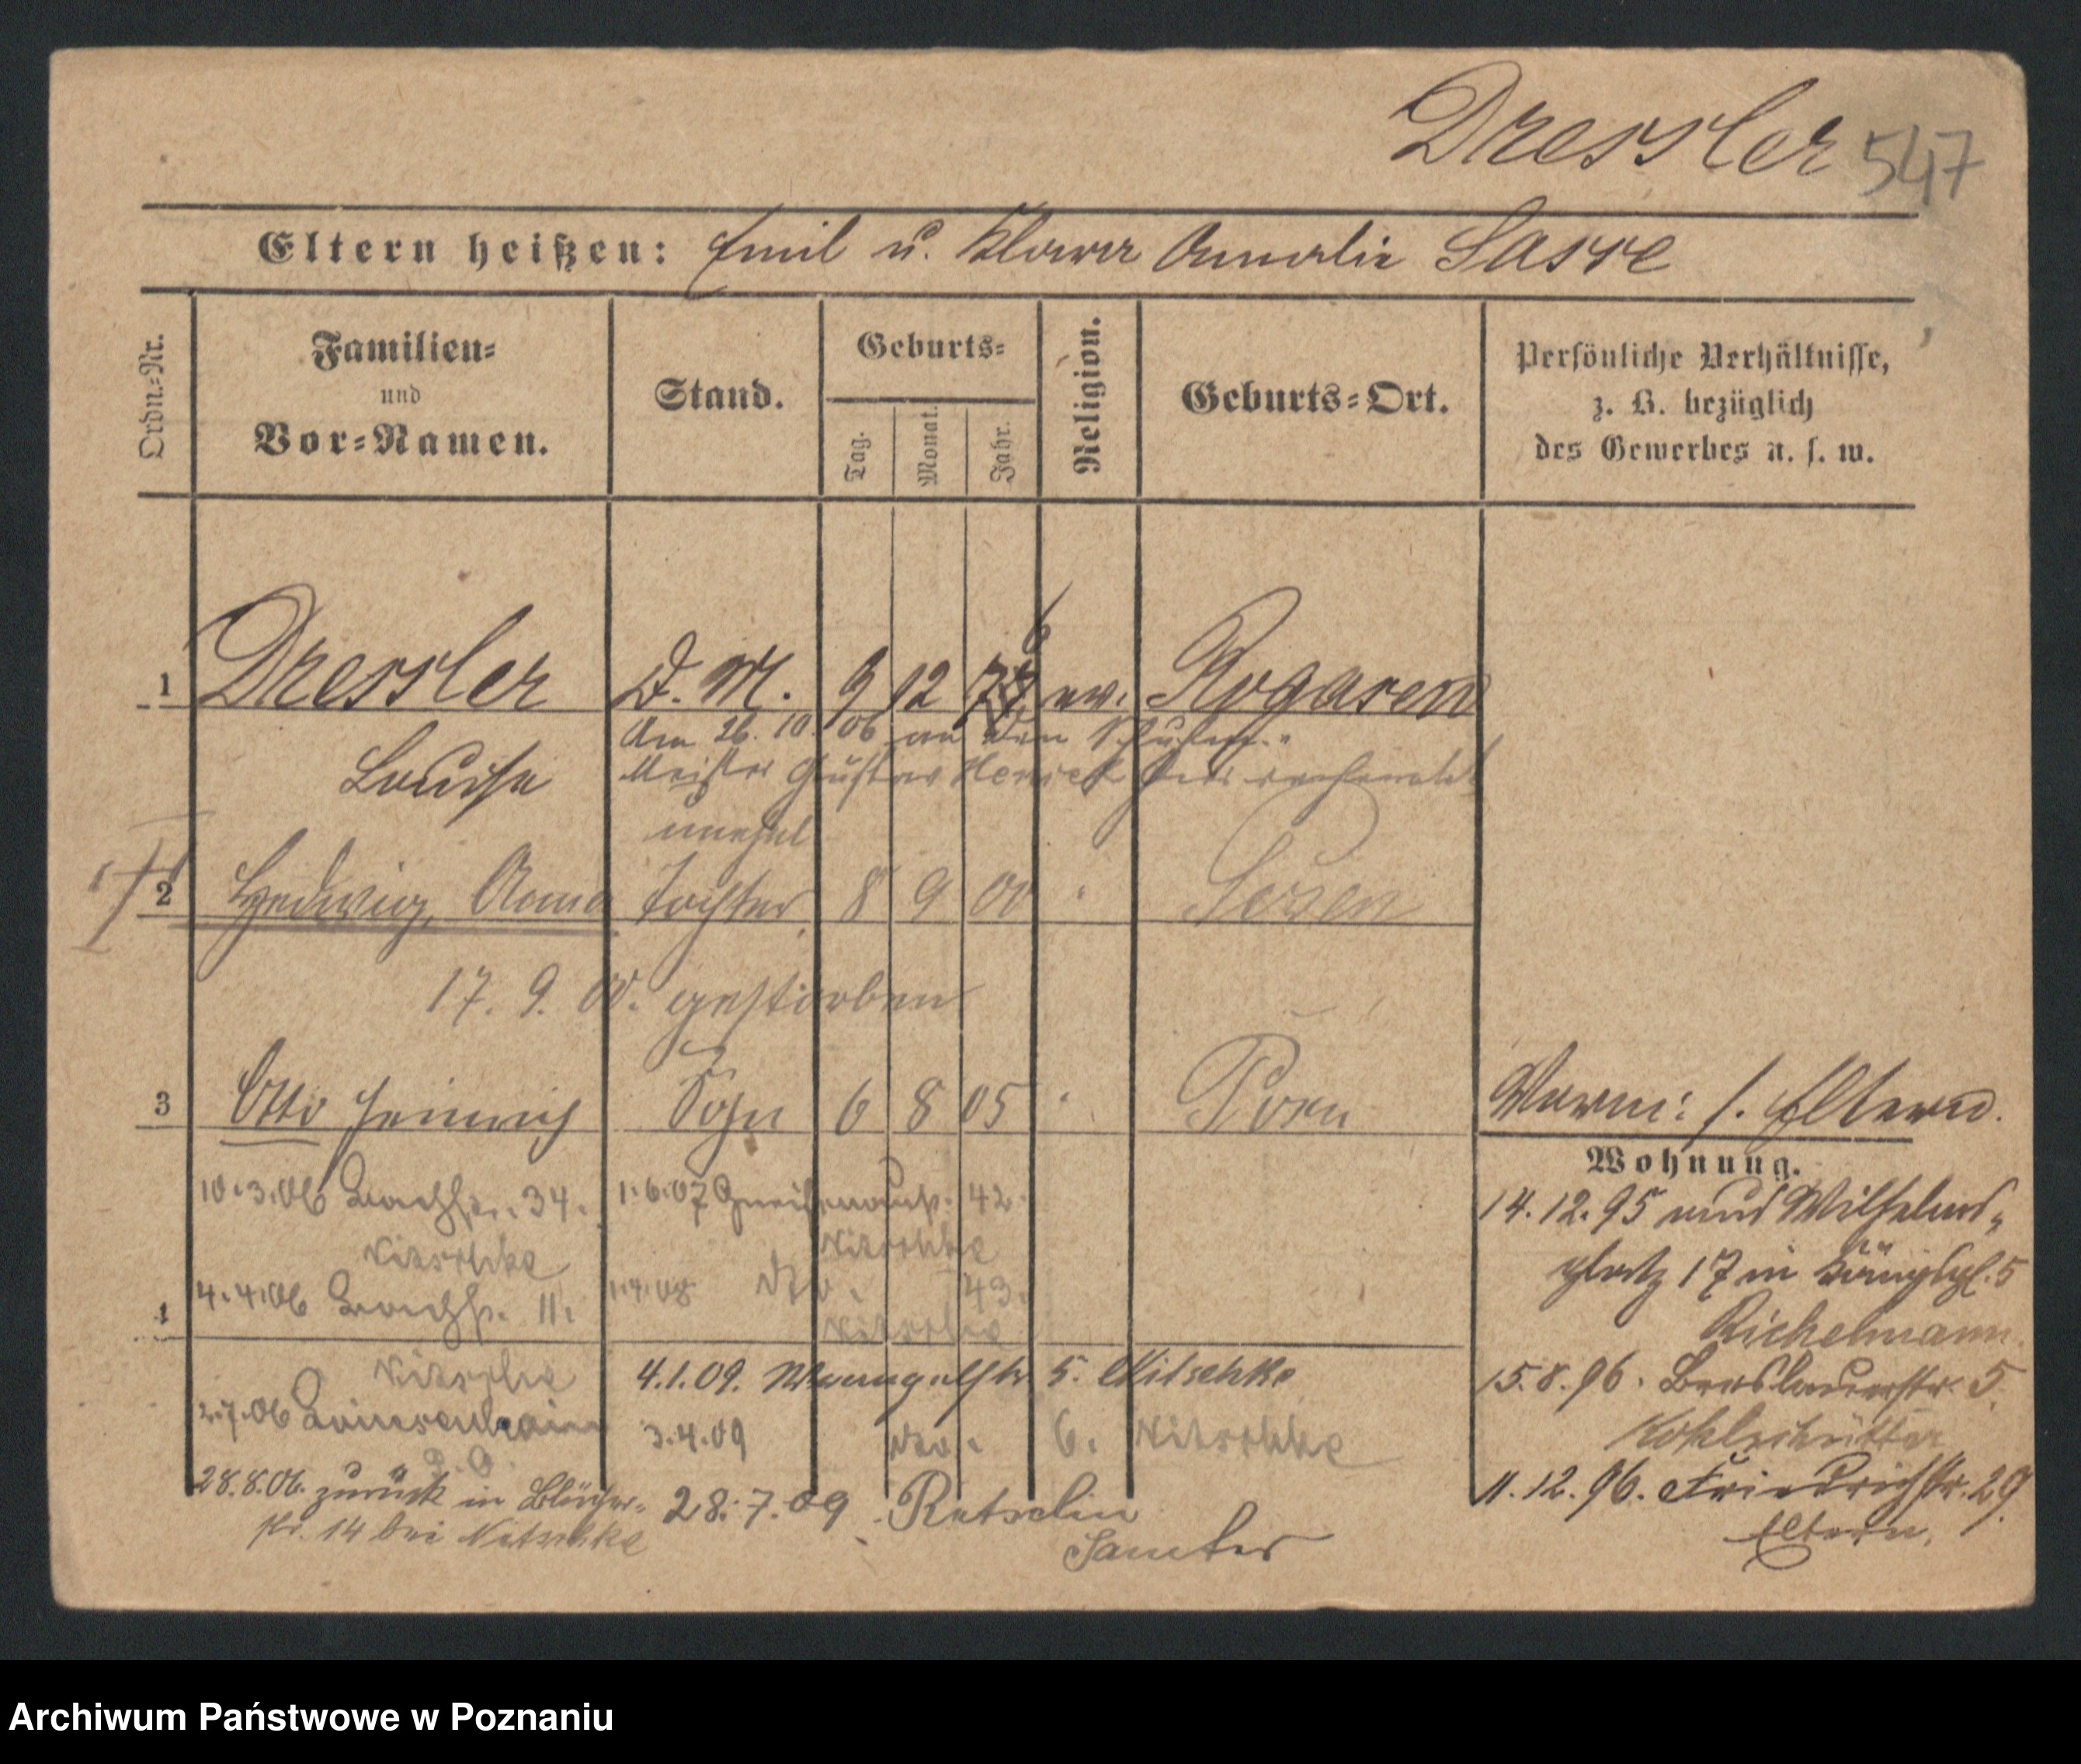 Dressler 547
Eltern heißen: Emil u. Klara Amalie Sasse
Ordn.-Nr.
Familien-
und
Vor-Namen.
Stand.
Geburts-
Tag.
Monat.
Jahr.
Religion.
Geburts-Ort.
Persönliche Verhältnisse,
z. B. bezüglich
des Gewerbes u. s. w.
1 Dressler D. M. 9 12 ev. Rogasen
Louise
Am 26. 10. 06 an den
Meister Gustav hier verheiratet
unehel
2 Hedwig, Anna Tochter 8 9 00 " Posen
17. 9. 00. gestorben
3 Otto Heinrich Sohn 6 8 05 " Posen
Vorm: s. Eltern.
Wohnung.
14. 12. 95 Wilhelms-
platz 17 in Königspl. 5
Richelmann
15. 8. 96. Breslauerstr. 5.
Kohlschütter
11. 12. 96. Friedrichstr. 29.
Eltern.
10.3.06 34.
Nitschke
4.4.06 11.
4
Nitschke
2.7.06
28.8.06. zurück in Blücher-
str. 14 bei Nitschke
1.6.07 Gneisenaustr. 42.
Nitschke
1.4.08 dto. 43.
Nitschke
4.1.09. Wrangelstr 5. Nitschke
3.4.09 dto. 6. Nitschke
28.7.09 Retschin
Samter
Archiwum Państwowe w Poznaniu